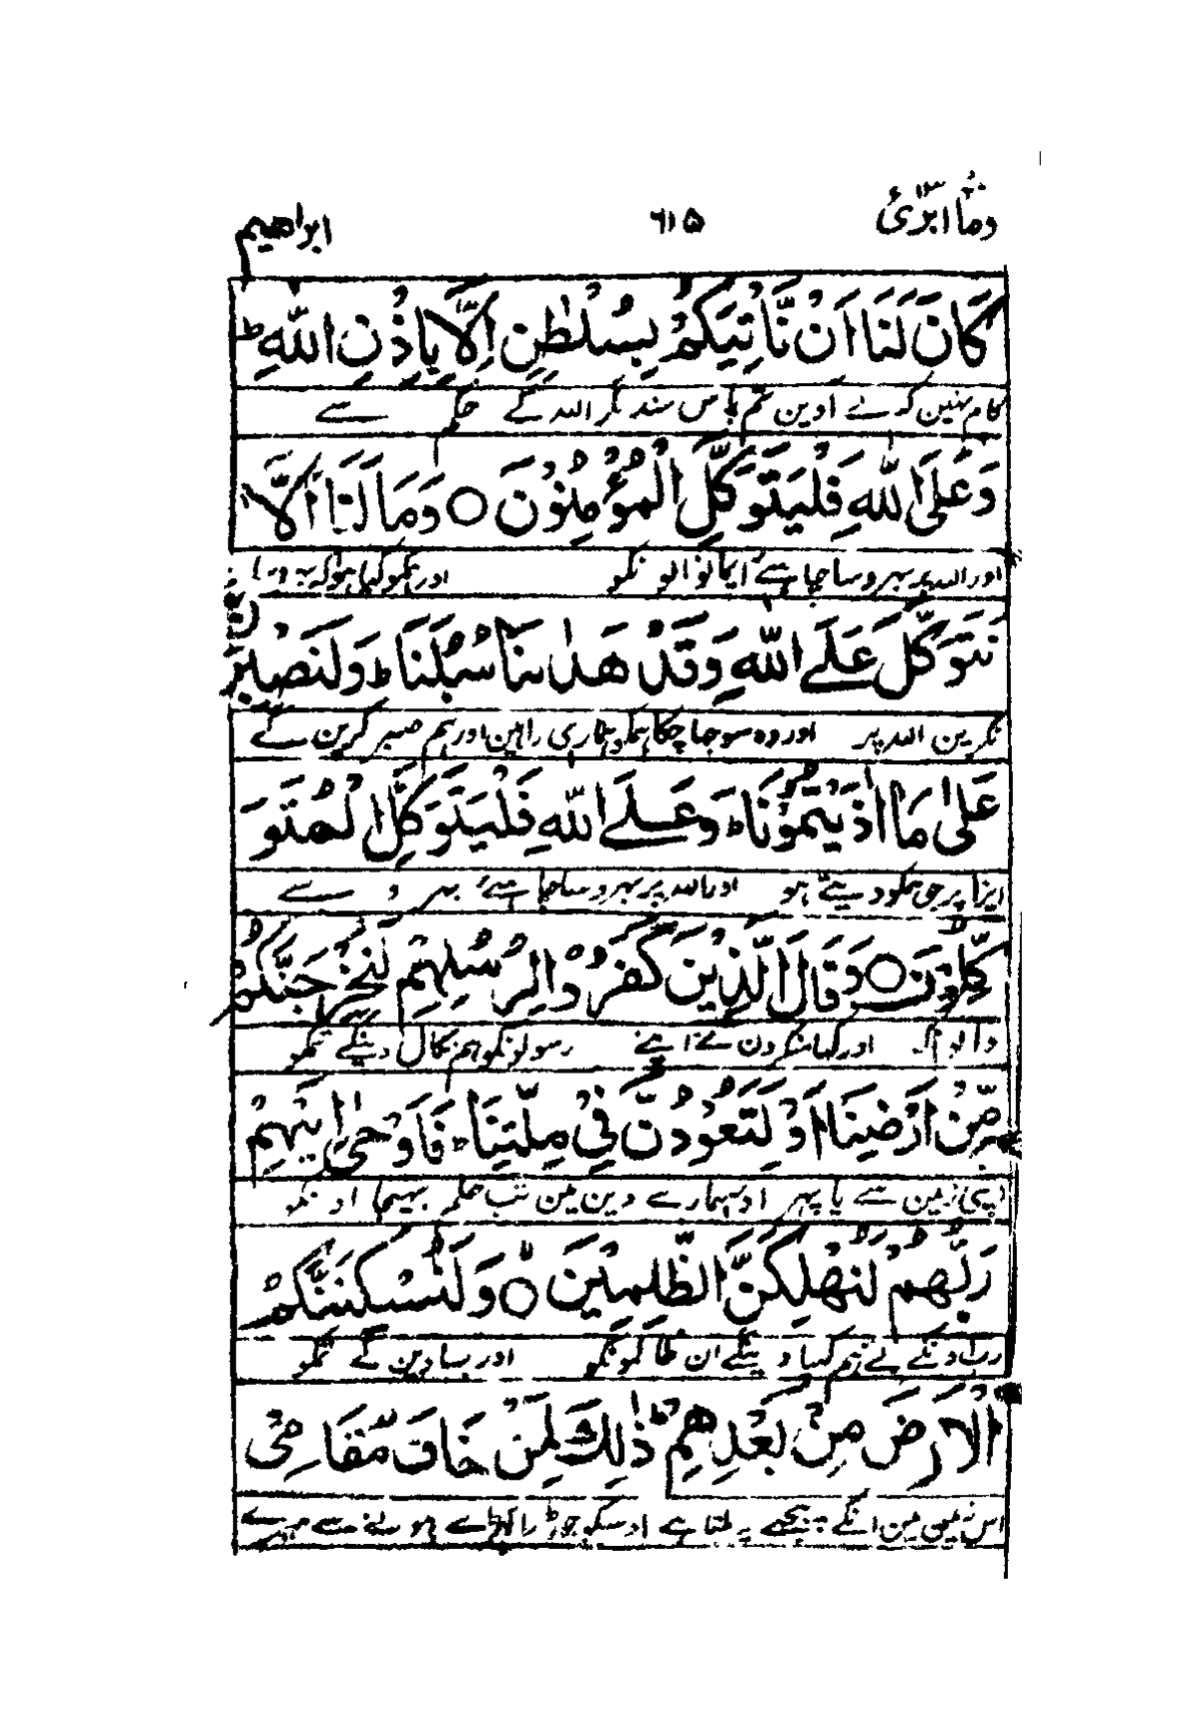 ابراهیم ۶۱۵ وما ابرئ ۱۳
كَانَ لَنَا اَنْ نَّاْتِيَكُمْ بِسُلْطٰنٍ اِلَّا بِاِذْنِ اللّٰهِ ط
کام نہین کہ لے آوین تم پاس سند مگر اللہ کے حکم سے
وَعَلَى اللّٰهِ فَلْيَتَوَكَّلِ الْمُؤْمِنُوْنَ ○ وَمَا لَنَا اَلَّا
اور اللہ پر بہروسا چاہئے ایمانوالونکو اور ہمکو کیا ہوا کہ بہروسا
نَتَوَكَّلَ عَلَے اللّٰهِ وَقَدْ هَدٰىنَا سُبُلَنَا ط وَلَنَصْبِرَنَّ
نکرین اللہ پر اور وہ سوجہا چکا ہمکو ہماری راہین اور ہم صبر کرین گے
عَلٰى مَا اٰذَيْتُمُوْنَا ط وَعَلَے اللّٰهِ فَلْيَتَوَكَّلِ الْمُتَوَ
ایذا پر جو ہمکو دیتے ہو اور اللہ پر بہروسا چاہئے بہروسے
كِّلُوْنَ ○ وَقَالَ الَّذِيْنَ كَفَرُوْا لِرُسُلِهِمْ لَنُخْرِجَنَّكُمْ
والونکو اور کہا منکرون نے اپنے رسولونکو ہم نکال دینگے تمکو
مِّنْ اَرْضِنَا اَوْ لَتَعُوْدُنَّ فِيْ مِلَّتِنَا ط فَاَوْحٰى اِلَيْهِمْ
اپنی زمین سے یا پہر آؤ ہمارے دین مین تب حکم بہیجا اونکو
رَبُّهُمْ لَنُهْلِكَنَّ الظّٰلِمِيْنَ ○ وَلَنُسْكِنَنَّكُمْ
رب اونکے نے ہم کہپا دینگے ان ظالمونکو اور بسا دین گے تمکو
الْاَرْضَ مِنْ بَعْدِهِمْ ط ذٰلِكَ لِمَنْ خَافَ مَقَامِيْ
اس زمین مین انکے پیچھے یہ ملتا ہے اوسکو جو ڈرا کہڑے ہونے سے میرے